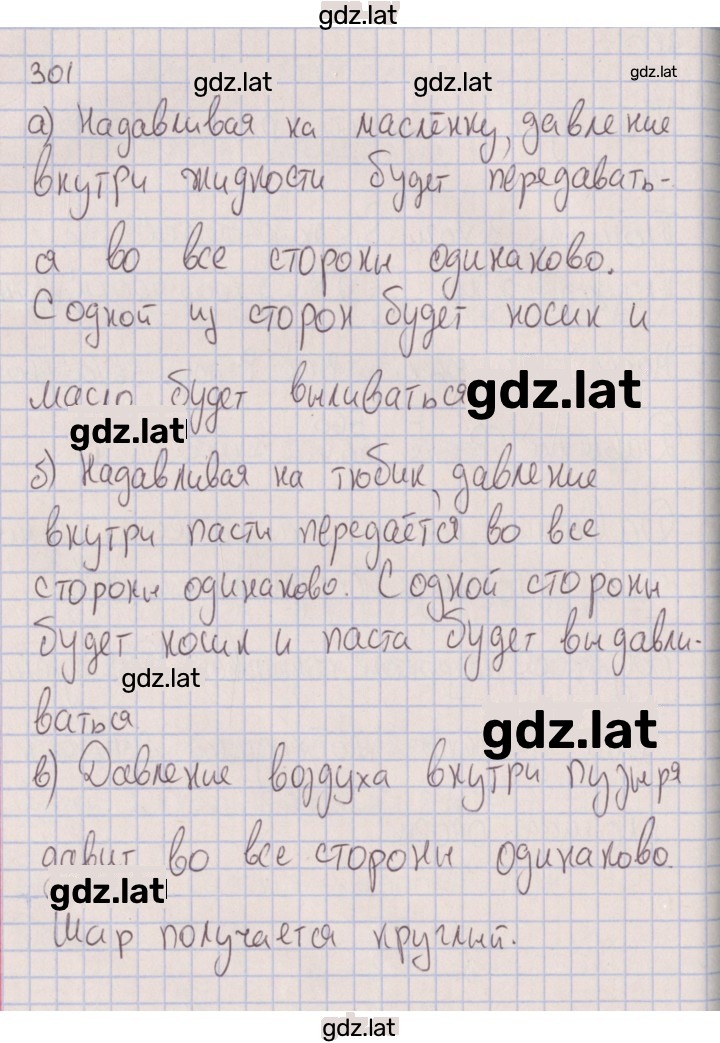 gdz.lat
301
gdz.lat gdz.lat gdz.lat
а) Надавливая на маслёнку, давление
внутри жидкости будет передавать-
я во все стороны одинаково.
С одной из сторон будет носик и
будет выливаться gdz.lat
gdz.lat
б) Надавливая на тюбик, давление
внутри пасти передаётся во все
стороны одинаково. С одной стороны
будет носик и паста будет выдавли-
gdz.lat
ваться gdz.lat
в) Давление воздуха внутри пузыря
во все стороны одинаково.
gdz.lat
Шар получается круглый.
gdz.lat